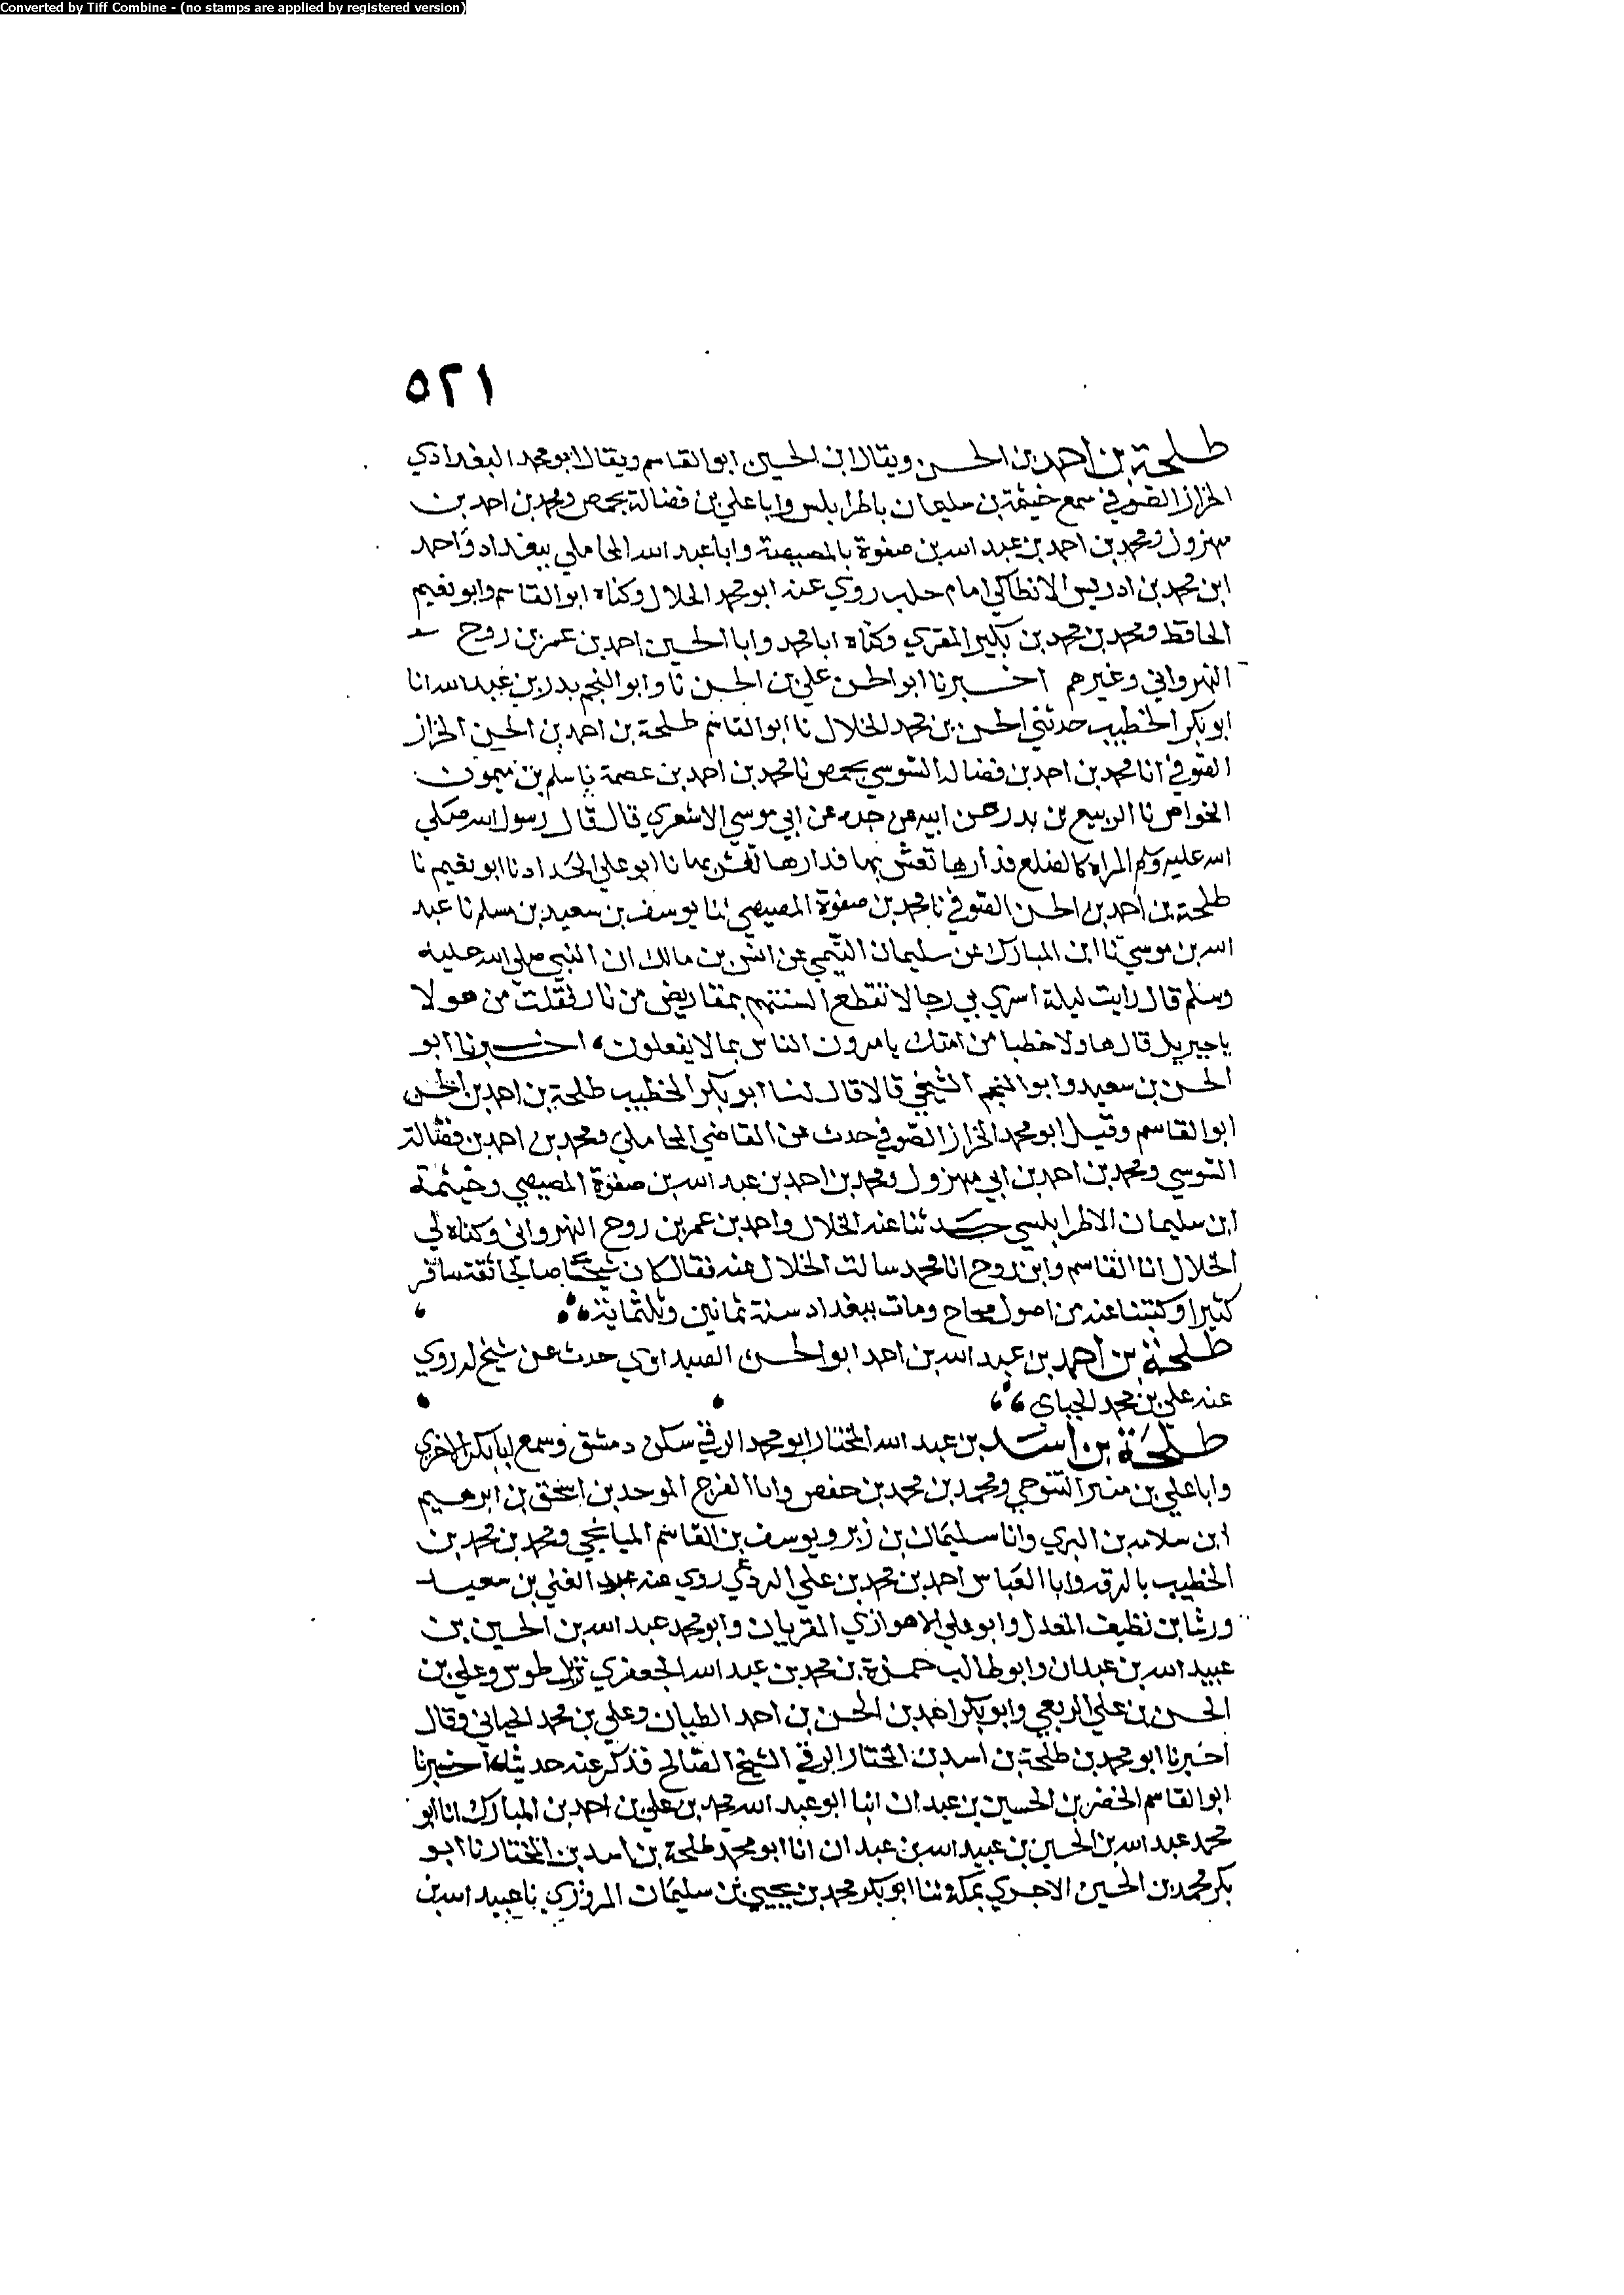 Converted by Tiff Combine - (no stamps are applied by registered version)
٥٢١
طلحة بن احمد بن الحسن ويقال ابن الحسين ابو القاسم ويقال ابو محمد البغدادي
الخزاز الصوفي سمع خيثمة بن سليمان باطرابلس وابا علي بن فضالة بحمص ومحمد بن احمد بن
مهزول ومحمد بن احمد بن عبد الله بن صفوة بالمصيصة وابا عبد الله المحاملي ببغداد واحمد
ابن محمد بن ادريس الانطاكي امام حلب روي عنه ابو محمد الخلال وكناه ابو القاسم وابو نعيم
الحافظ ومحمد بن محمد بن بكير المقري وكناه ابا محمد وابا الحسين احمد بن عمر بن روح
النهرواني وغيرهم اخبرنا ابو الحسن علي بن الحسن نا وابو النجم بدر بن عبد الله انا
ابو بكر الخطيب حدثني الحسن بن محمد الخلال نا ابو القاسم طلحة بن احمد بن الحسين الخزاز
الصوفي انا محمد بن احمد بن فضالة السوسي بحمص نا محمد بن احمد بن عصمة نا سلم بن ميمون
الخواص نا الربيع بن بدر عن ابيه عن جده عن ابي موسي الاشعري قال قال رسول الله صلي
الله عليه وسلم المراة كالضلع فدارها تعش بها فدارها تعش بها نا ابو علي الحداد نا ابو نعيم نا
طلحة بن احمد بن الحسن الصوفي نا محمد بن صفوة المصيصي نا يوسف بن سعيد بن مسلم نا عبد
الله بن موسي نا ابن المبارك عن سليمان التيمي عن انس بن مالك ان النبي صلي الله عليه
وسلم قال رايت ليلة اسري بي رجالا تقطع السنتهم بمقاريض من نار فقلت من هولا
يا جبريل قال هاولا خطبا من امتك يامرون الناس بما لا يفعلون، اخبرنا ابو
الحسن بن سعيد وابو النجم الشيخي قالا قال لنا ابو بكر الخطيب طلحة بن احمد بن الحسن
ابو القاسم وقيل ابو محمد الخزاز الصوفي حدث عن القاضي المحاملي ومحمد بن احمد بن فضالة
السوسي ومحمد بن احمد بن ابي مهزول ومحمد بن احمد بن عبد الله بن صفوة المصيصي وخيثمة
ابن سليمان الاطرابلسي حدثنا عنه الخلال واحمد بن عمر بن روح النهرواني وكناه لي
الخلال انا القاسم وابن روح انا محمد سالت الخلال عنه فقال كان شيخا صالحا ثقة سافر
كثيرا وكتبنا عنه من اصول صحاح ومات ببغداد سنة ثمانين وثلثماية
طلحة بن احمد بن عبد الله بن احمد ابو الحسن الصيداوي حدث عن شيخ له روي
عنه علي بن محمد الجباي
طلحة بن اسد بن عبد الله المختار ابو محمد الرقي سكن دمشق وسمع ابا بكر الاجري
وابا علي بن منير التنوخي ومحمد بن محمد بن حفص وابا الفرج الموحد بن اسحق بن ابرهيم
ابن سلامه بن البري وانا سليمان بن زبر ويوسف بن القاسم الميانجي ومحمد بن محمد بن
الخطيب بالرقة وابا العباس احمد بن محمد بن علي البردعي روي عنه عبد الغني بن سعيد
ورشا بن نظيف المعدل وابو علي الاهوازي المقريان وابو محمد عبد الله بن الحسين بن
عبيد الله بن عبدان وابو طالب حمزة بن محمد بن عبد الله الجعفري نزيل طوس وعلي بن
الحسن بن علي الربعي وابو بكر احمد بن الحسن بن احمد الطيان وعلي بن محمد الجباني وقال
اخبرنا ابو محمد بن طلحة بن اسد بن المختار الرقي الشيخ الصالح فذكر عنه حديثا، اخبرنا
ابو القاسم الخضر بن الحسين بن عبدان انبا ابو عبد الله محمد بن علي بن احمد بن المبارك انا ابو
محمد عبد الله بن الحسين بن عبيد الله بن عبدان انا ابو محمد طلحة بن اسد بن المختار نا ابو
بكر محمد بن الحسين الاجري بمكة نا ابو بكر محمد بن يحيي بن سليمان المروزي نا عبيد الله بن